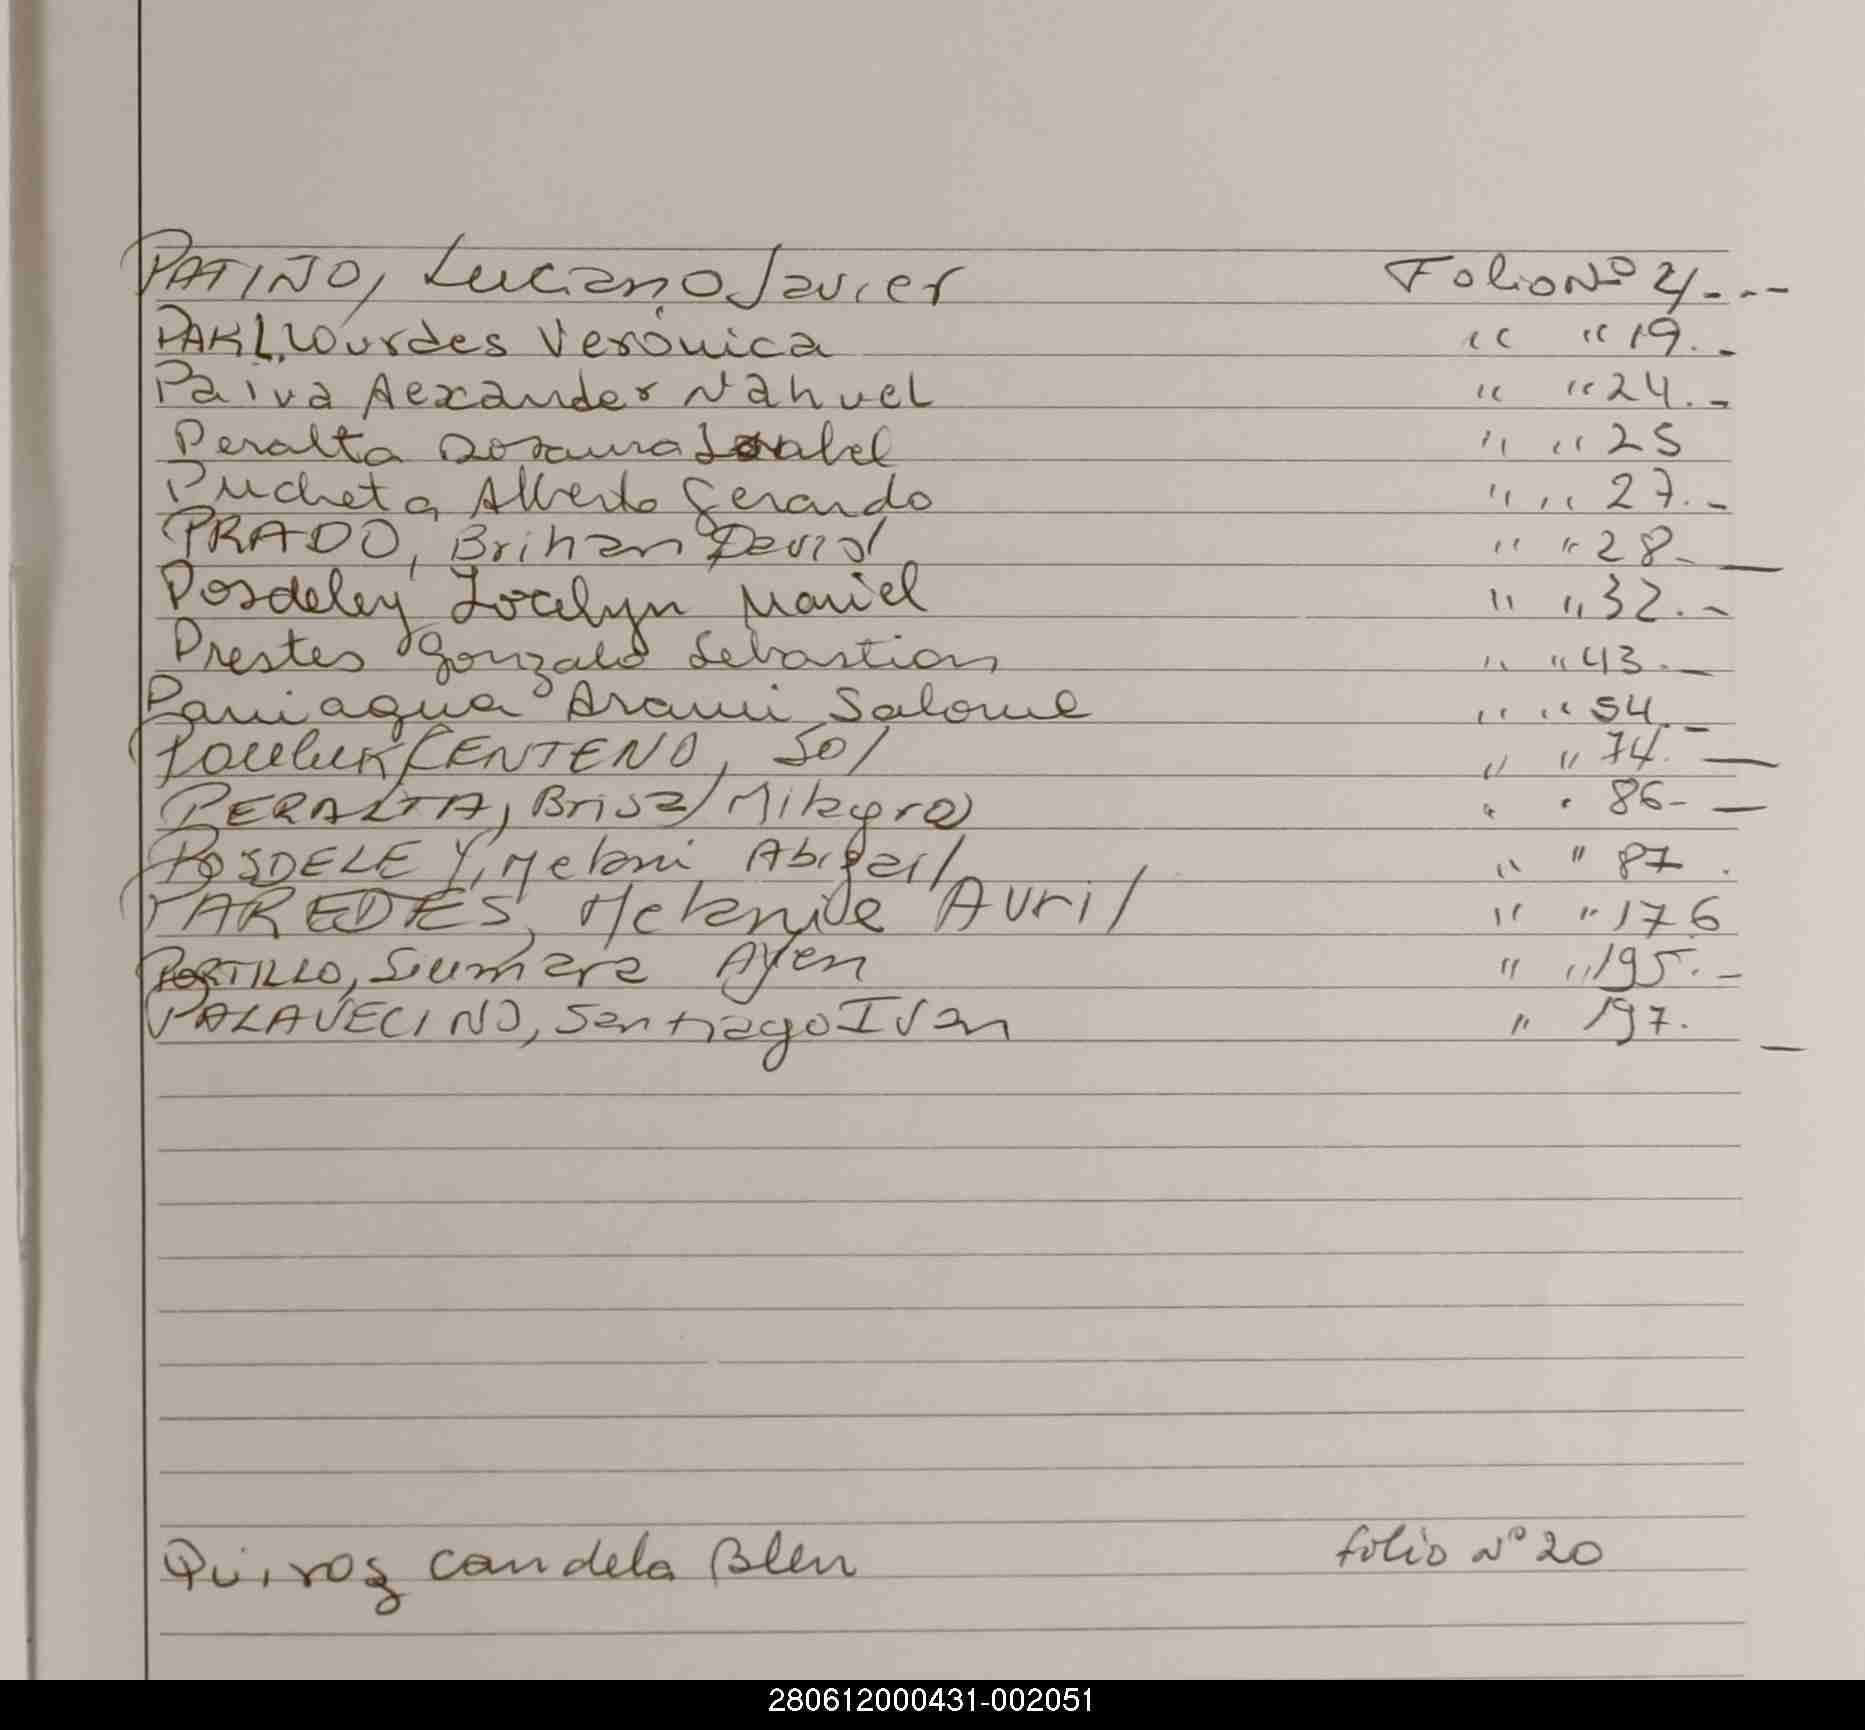 PATIÑO, Luciano Javier Folio Nº 4/- - -
PAKL. Lourdes Verónica " " 19.-
Paiva Aexander Nahuel " " 24.-
Peralta Rosaura Isabel " " 25
Pucheta Alberto Gerardo " " 27.-
PRADO, Brihan David " " 28-
Posdeley Jocelyn Mariel " " 32.-
Prestes Gonzalo Sebastian " " 43.-
Paniagua Arami Salome " " 54.-
CENTENO, Sol " " 74.-
PERALTA, Brisa Milagro " " 86-
POSDELEY, Melani Abigail " " 87.
PAREDES, Melanie Avril " " 176
PORTILLO, Siumara Ayen " " 195.-
PALAVECINO, Santiago Ivan " 197.
Quiroz candela Blen folio Nº 20
280612000431-002051